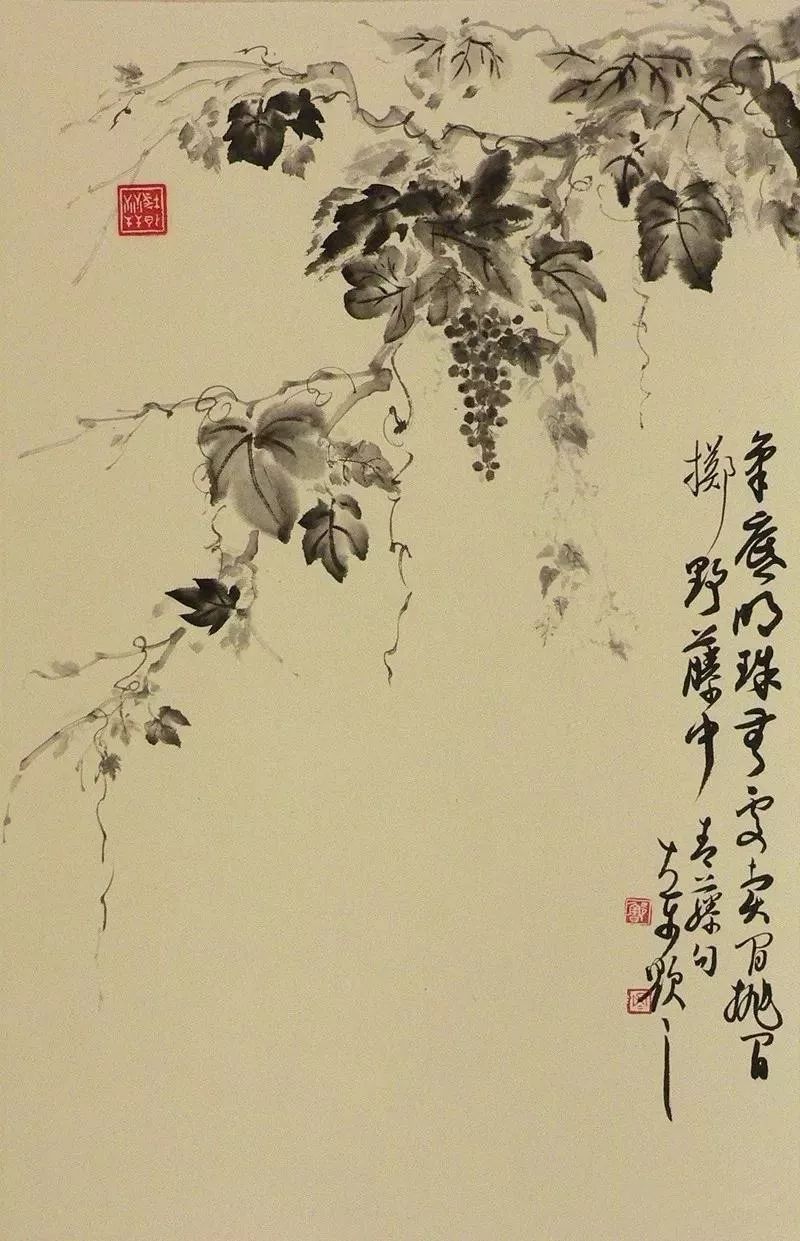 筆底明珠無處賣閒拋閒
擲野藤中
青藤句
題之